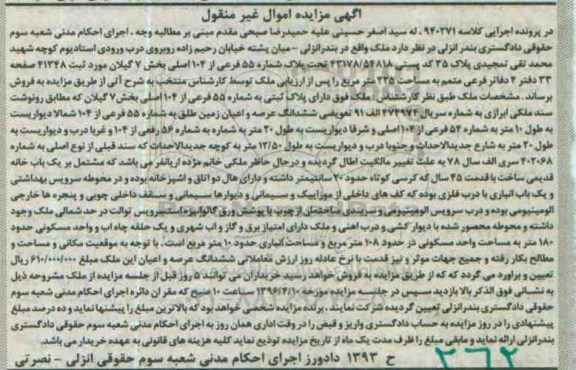 آگهی مزایده اموال غیر منقول
در پرونده اجرایی کلاسه ۹۴۰۲۷۱، له سید اصغر حسینی علیه حمیدرضا صبحی مقدم مبنی بر مطالبه وجه، اجرای احکام مدنی شعبه سوم
حقوقی دادگستری بندر انزلی در نظر دارد ملک واقع در بندرانزلی - میان پشته خیابان رحیم زاده روبروی درب ورودی استادیوم کوچه شهید
محمد تقی تمجیدی پلاک ۳۵ کد پستی ۴۳۱۷۸/۵۴۸۱۸ تحت پلاک شماره ۵۵ فرعی از ۱۰۴ اصلی بخش ۷ گیلان مورد ثبت ۴۱۳۴۸ صفحه
۳۳ دفتر ۴ دفاتر فرعی منضم به مساحت ۲۳۵ متر مربع را پس از ارزیابی ملک توسط کارشناس منتخب به شرح آتی از طریق مزایده به فروش
برساند. مشخصات ملک طبق نظر کارشناس: ملک فوق دارای پلاک ثبتی به شماره ۵۵ فرعی از ۱۰۴ اصلی بخش ۷ گیلان که مطابق رونوشت
سند ملکی ابرازی به شماره سریال ۴۷۴۹۷۴ الف ۹۱ تعویضی ششدانگ عرصه و اعیان زمین طلق به شماره ۵۵ فرعی از ۱۰۴ شمالا دیواریست
به طول ۱۰ متر به شماره ۵۴ فرعی از ۱۰۴ اصلی و شرقا دیواریست به طول ۲۰ متر به شماره به شماره ۵۶ فرعی از ۱۰۴ و غربا درب و دیواریست به
طول ۲۰ متر به شارع جدیدالاحداث و جنوبا درب و دیواریست به طول ۱۲/۵۰ متر به کوچه جدیدالاحداث که سند قبلی از نوع اصلی به شماره
۴۰۲۰۶۸ سری الف سال ۷۸ به علت تغییر مالکیت ابطال گردیده و درحال حاظر ملکی خانم مژده اریانفر می باشد که مشتمل بر یک باب خانه
قدیمی ساخت با قدمت ۴۵ سال که کرسی کوتاه حدود ۲۰ سانتیمتر داشته و دارای هال دو اتاق و اشپزخانه بوده و در محوطه سرویس بهداشتی
و یک باب انباری با درب فلزی بوده که کف های داخلی از موزاییک و سیمانی و دیوارها سیمانی و سقف داخلی چوبی و پنجره ها خارجی
الومینیومی بوده و درب سرویس الومینیومی و سربندی ساختمان از چوب با پوشش ورق گالوانیزه است سرویس توالت در حد شمالی ملک وجود
داشته و محوطه محصور شده با دیوار کشی و درب اهنی و ملک دارای امتیاز برق و گاز و اب شهری و یک حلقه چاه اب و واحد مسکونی حدود
۱۸۰ متر به مساحت واحد مسکونی در حدود ۱۰۸ متر مربع و مساحت انباری حدود ۱۰ متر مربع است. با توجه به موقعیت مکانی و مساحت و
مصالح بکار رفته و جمیع جهات موثر و نیز قدمت با نرخ عادله روز ارزش معاملاتی ششدانگ عرصه و اعیان این ملک مبلغ ۶۱۰/۰۰۰/۰۰۰ ریال
تعیین و براورد می گردد که که از طریق مزایده به فروش خواهد رسید خریداران می توانند ۵ روز قبل از جلسه مزایده از ملک مشروحه ذیل
به نشانی فوق الذکر بالا بازدید سپس در جلسه مزایده مورخه ۱۳۹۶/۴/۱۰ ساعت ۱۰ صبح که مقر ان دائره اجرای احکام مدنی شعبه سوم
حقوقی دادگستری بندرانزلی تعیین گردیده شرکت نمایند. برنده مزایده شخصی خواهد بود که بالاترین مبلغ را پیشنهاد نماید و ده درصد مبلغ
پیشنهادی را در روز مزایده به حساب دادگستری واریز و قبض را در وقت اداری همان روز به اجرای احکام مدنی شعبه سوم حقوقی دادگستری
بندرانزلی ارائه نماید و مابقی مبلغ را ظرف مدت یک ماه از تاریخ مزایده تودیع نماید کلیه هزینه های قانونی به عهده خریدار می باشد.
ح ۱۳۹۳ دادورز اجرای احکام مدنی شعبه سوم حقوقی انزلی - نصرتی
۲۶۲